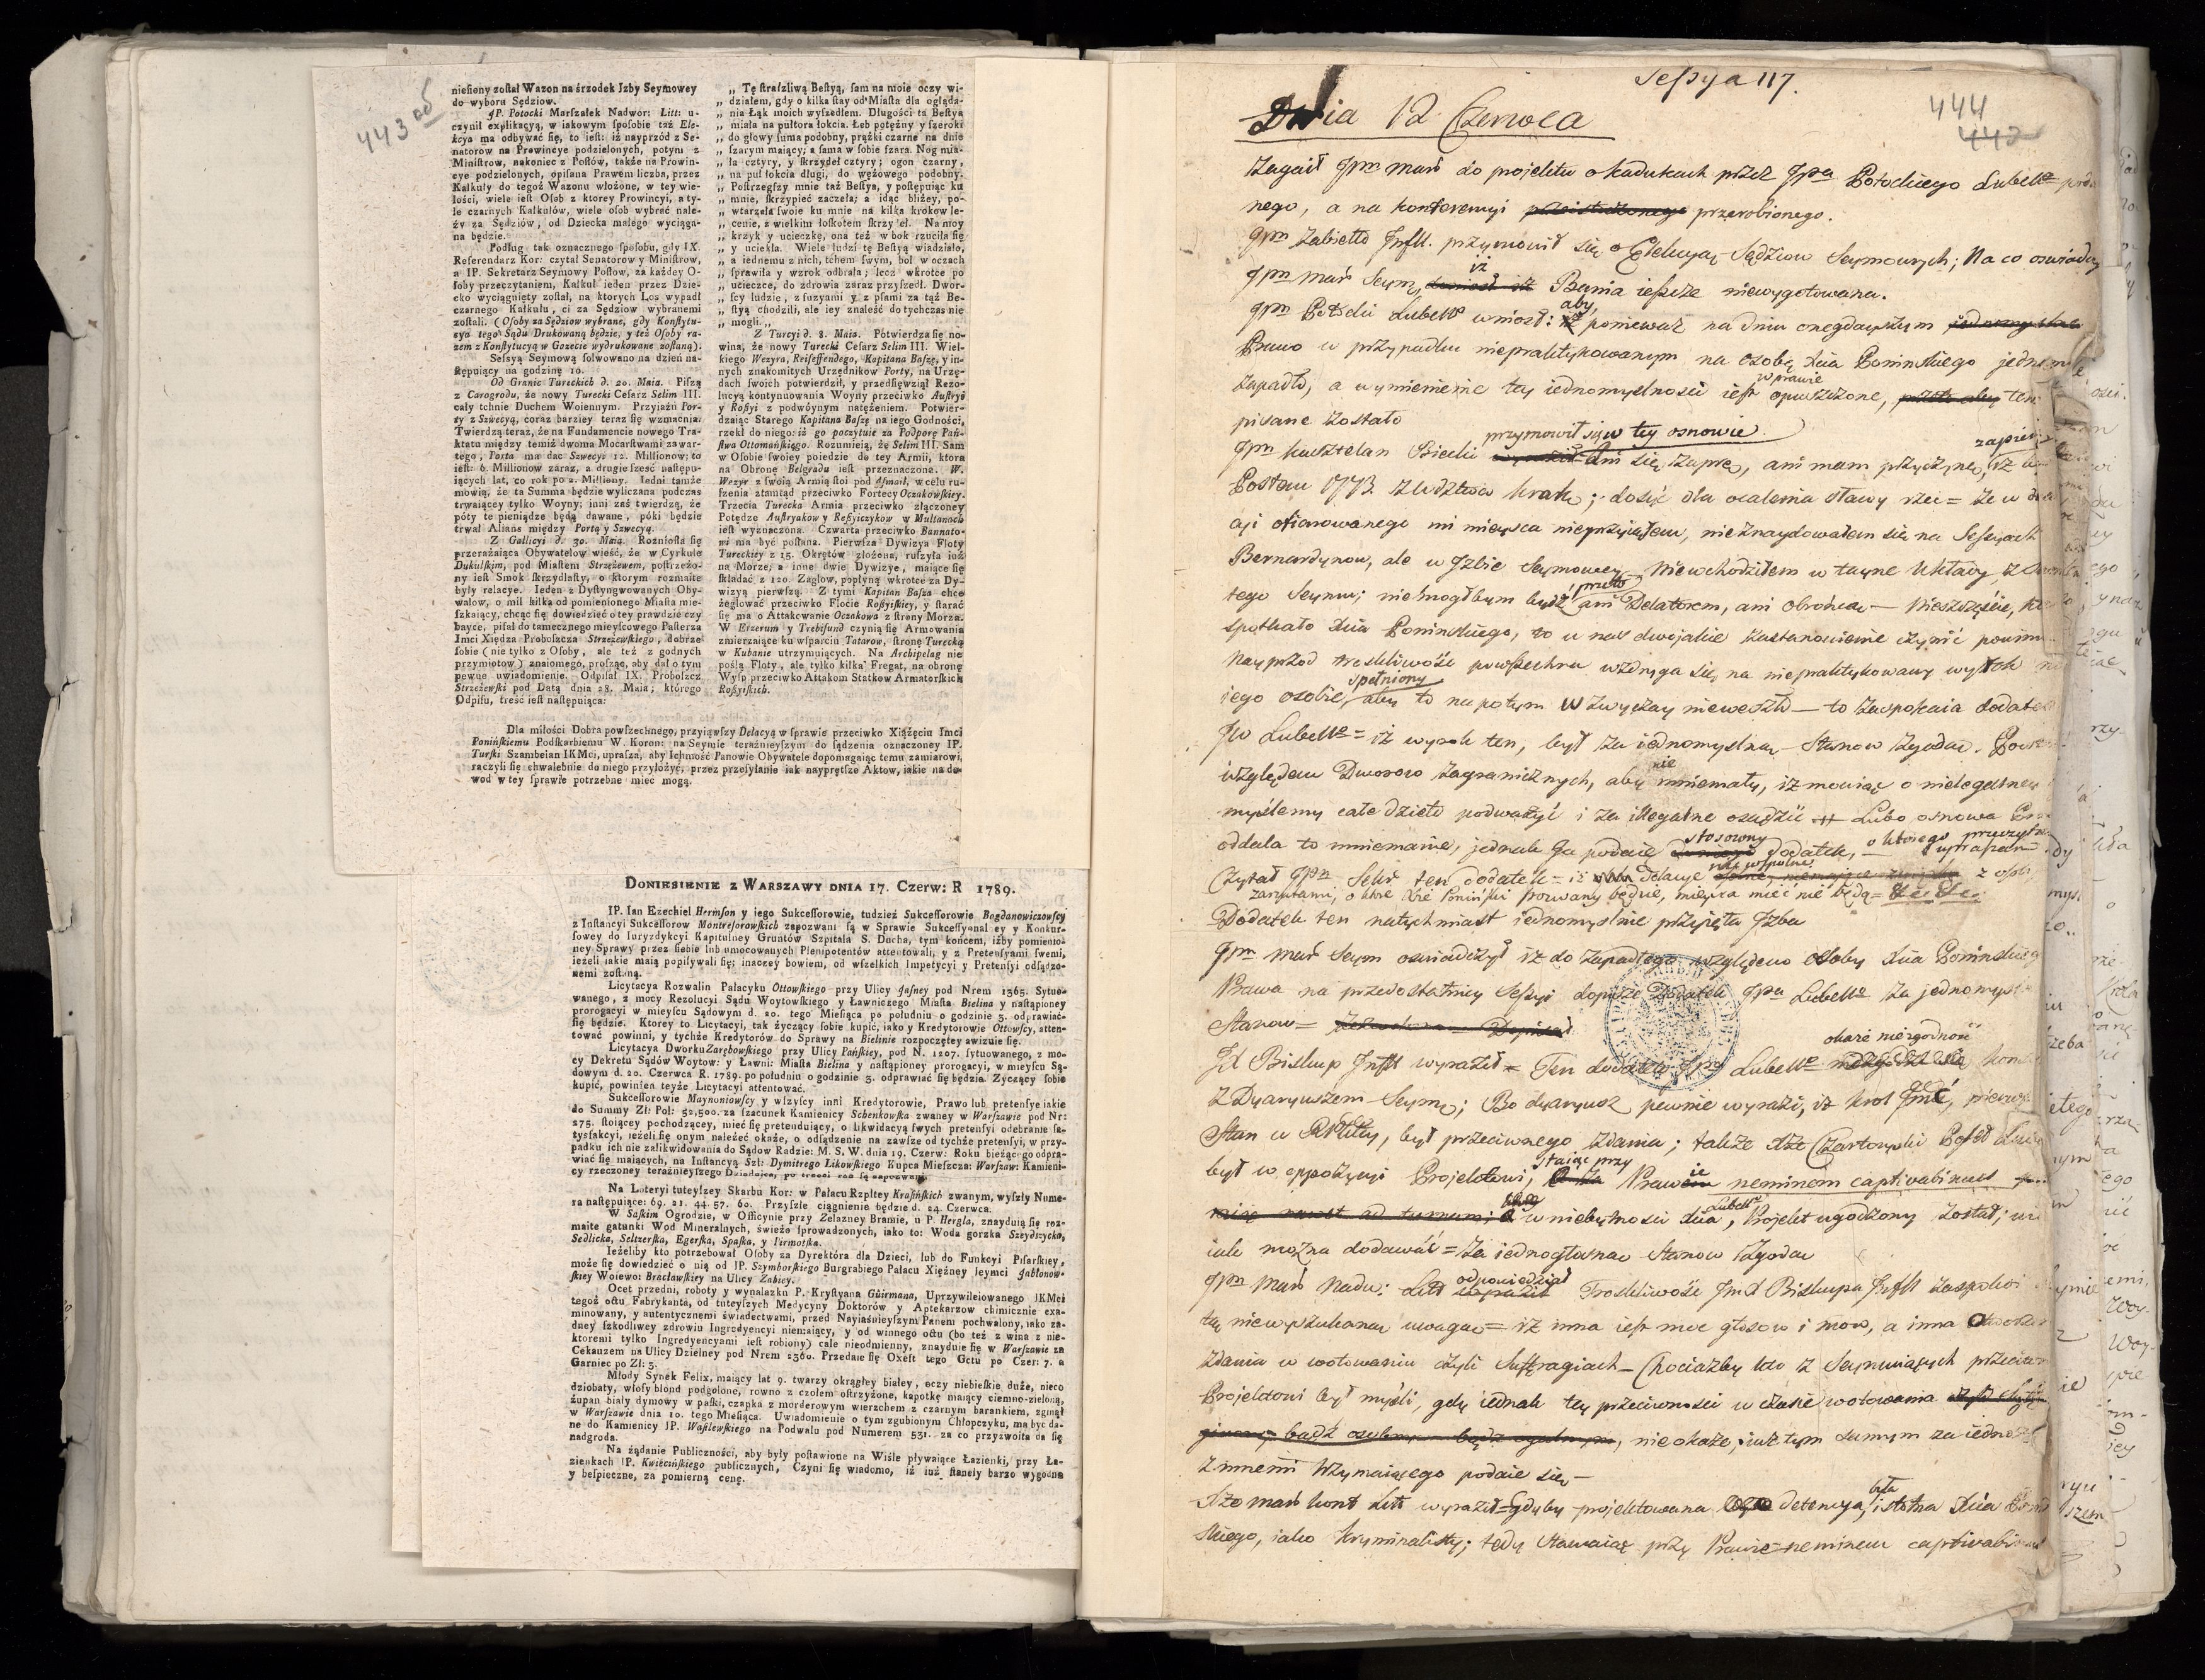 443 об
niesiony został Wazon na środek Izby Seymowey
do wyboru Sędziow.
JP. Potocki Marszałek Nadwor: Litt: u-
czynił explikacyą, w iakowym sposobie taż Ele-
kcya ma odbywać się, to iest: iż nayprzód z Se-
natorow na Prowincye podzielonych, potym z
Ministrow, nakoniec z Posłów, także na Prowin-
cye podzielonych, opisana Prawem liczba, przez
Kalkuły do tegoż Wazonu włożone, w tey wie-
lości, wiele iest Osob z ktorey Prowincyi, a ty-
le czarnych Kalkułów, wiele osob wybrać nale-
ży za Sędziów, od Dziecka małego wyciąga-
na będzie.
Podług tak oznacznego sposobu, gdy IX.
Referendarz Kor: czytał Senatorow y Ministrow,
a IP. Sekretarz Seymowy Posłow, za każdey O-
soby przeczytaniem, Kalkuł ieden przez Dzie-
cko wyciągnięty został, na ktorych Los wypadł
czarnego Kalkułu, ci za Sędziow wybranemi
zostali. (Osoby za Sędziow wybrane, gdy Konstytu-
cya tego Sądu Drukowaną będzie, y też Osoby ra-
zem z Konstytucyą w Gazecie wydrukowane zostaną).
Sessyą Seymową solwowano na dzień na-
stępuiący na godzinę 10.
Od Granic Tureckich d. 20. Maia. Piszą
z Carogrodu, że nowy Turecki Cesarz Selim III.
cały tchnie Duchem Woiennym. Przyiaźń Por-
ty z Szwecyą, coraz barziey teraz się wzmacnia.
Twierdzą teraz, że na Fundamencie nowego Tra-
ktatu między temiż dwoma Mocarstwami zawar-
tego, Porta ma dac Szwecyi 12. Millionow; to
iest: 6. Millionow zaraz, a drugie sześć nastepu-
iących lat, co rok po 2. Milliony. Iedni tamże
mowią, że ta Summa będzie wyliczana podczas
trwaiącey tylko Woyny; inni zaś twierdzą, że
póty te pieniądze będą dawane, póki będzie
trwał Alians między Portą y Szwecyą.
Z Gallicyi d. 30. Maia. Rozniosła się
przerażaiąca Obywatelow wieść, że w Cyrkule
Dukulskim, pod Miastem Strzeżewem, postrzeżo-
ny iest Smok skrzydlasty, o ktorym rozmaite
były relacye. Ieden z Dystyngwowanych Oby-
walow, o mil kilka od pomienionego Miasta mie-
szkaiący, chcąc się dowiedzieć o tey prawdzie czy
bayce, pisał do tamecznego mieyscowego Pasterza
Imci Xiędza Proboszcza Strzeżewskiego, dobrze
sobie (nie tylko z Osoby, ale też z godnych
przymiotow) znaiomego, prosząc, aby dał o tym
pewne uwiadomienie. Odpisał IX. Proboszcz
Strzeżewski pod Datą dnia 28. Maia; którego
Odpisu, treść iest następuiąca:
„ Tę straszliwą Bestyą, sam na moie oczy wi-
„ działem, gdy o kilka stay od Miasta dla ogląda-
„ nia Łąk moich wyszedłem. Długości ta Bestya
„ miała na pułtora łokcia. Łeb potężny y szeroki
„ do głowy suma podobny, prążki czarne na dnie
„ szarym maiący; a sama w sobie szara. Nog mia-
„ ła cztyry, y skrzydeł cztyry; ogon czarny,
„ na puł łokcia długi, do wężowego podobny.
„ Postrzegszy mnie taż Bestya, y postępuiąc ku
„ mnie, skrzypieć zaczęła; a idąc bliżey, po-
„ wtarzała swoie ku mnie na kilka krokow le-
„ cenie, z wielkim łoskotem skrzydeł. Na moy
„ krzyk y ucieczkę, ona też w bok rzuciła się
„ y uciekła. Wiele ludzi tę Bestyą wiadziało,
„ a iednemu z nich, tchem swym, bol w oczach
„ sprawiła y wzrok odbrała; lecz wkrotce po
„ ucieczce, do zdrowia zaraz przyszedł. Dwor-
„ scy ludzie, z fuzyami y z psami za tąż Be-
„ styą chodzili, ale iey znaleść dotychczas nie
„ mogli. „
Z Turcyi d. 8. Maia. Potwierdza się no-
wina, że nowy Turecki Cesarz Selim III. Wiel-
kiego Wezyra, Reiseffendego, Kapitana Baszę, y in-
nych znakomitych Urzędnikow Porty, na Urzę-
dach swoich potwierdził, y przedsięwziął Rezo-
lucyą kontynuowania Woyny przeciwko Austryi
y Rossyi z podwóynym natężeniem. Potwier-
dzaiąc Starego Kapitana Baszę na iego Godności,
rzekł do niego: iż go poczytuie za Podporę Pań-
stwa Ottomańskiego. Rozumieią, że Selim III. Sam
w Osobie swoiey poiedzie do tey Armii, ktora
na Obronę Belgradu iest przeznaczona. W.
Wezyr z swoią Armią stoi pod Ismail, w celu ru-
szenia ztamtąd przeciwko Fortecy Oczakowskiey.
Trzecia Turecka Armia przeciwko złączoney
Potędze Austryakow y Rossyiczykow w Multanach
iest wyznaczona. Czwarta przeciwko Bannato-
wi ma być posłana. Pierwsza Dywizya Floty
Tureckiey z 15. Okrętów złożona, ruszyła iuż
na Morze; a inne dwie Dywizye, maiące się
składać z 120. Zaglow, popłyną wkrotce za Dy-
wizyą pierwszą. Z tymi Kapitan Basza chce
żeglować przeciwko Flocie Rossyiskiey, y starać
się ma o Attakowanie Oczakowa z strony Morza.
W Erzerum y Trebisund czynią się Armowania
zmierzaiące ku wsparciu Tatarow, stronę Turecką
w Kubanie utrzymuiących. Na Archipelag nie
poślą Floty, ale tylko kilka Fregat, na obronę
Wysp przeciwko Attakom Statkow Armatorskich
Rossyiskich.
Dla miłości Dobra powszechnego, przyiąwszy Delacyą w sprawie przeciwko Xiążęciu Imci
Ponińskiemu Podskarbiemu W. Koron: na Seymie teraźnieyszym do sądzenia oznaczoney IP.
Turski Szambelan IKMci, uprasza, aby Ichmość Panowie Obywatele dopomagaiąc temu zamiarowi,
raczyli się chwalebnie do niego przyłożyć, przez przesyłanie iak nayprętsze Aktow, iakie na do-
wod w tey sprawie potrzebne mieć mogą.
DONIESIENIE Z WARSZAWY DNIA 17. Czerw: R 1789.
IP. Ian Ezechiel Hermson y iego Sukcessorowie, tudzież Sukcessorowie Bogdanowiczowscy
z Instancyi Sukcessorow Montresorowskich zapozwani są w Sprawie Sukcessyonalney y Konkur-
sowey do Iuryzdykcyi Kapitulney Gruntów Szpitala S. Ducha, tym końcem, iżby pomienio-
ney Sprawy przez siebie lub umocowanych Plenipotentów attentowali, y z Pretensyami swemi,
ieżeli iakie maią popisywali się; inaczey bowiem, od wszelkich Impetycyi y Pretensyi odsądzo-
nemi zostaną.
Licytacya Rozwalin Pałacyku Ottowskiego przy Ulicy Jasney pod Nrem 1365. Sytuo-
wanego, z mocy Rezolucyi Sądu Woytowskiego y Ławniczego Miasta Bielina y nastąpioney
prorogacyi w mieyscu Sądowym d. 20. tego Miesiąca po południu o godzinie 3. odprawiać
się będzie. Ktorey to Licytacyi, tak życzący sobie kupić, iako y Kredytorowie Ottowscy, atten-
tować powinni, y tychże Kredytorów do Sprawy na Bielinie rozpoczętey awizuie się.
Licytacya Dworku Zarębowskiego przy Ulicy Pańskiey, pod N. 1207. sytuowanego, z mo-
cy Dekretu Sądów Woytow: y Ławni: Miasta Bielina y nastąpioney prorogacyi, w mieyscu Są-
dowym d. 20. Czerwca R. 1789. po południu o godzinie 3. odprawiać się będzie. Życzący sobie
kupić, powinien teyże Licytacyi attentować.
Sukcessorowie Maynoniowscy y wszyscy inni Kredytorowie, Prawo lub pretensye iakie
do Summy Zł: Pol: 52,500. za szacunek Kamienicy Schenkowska zwaney w Warszawie pod Nr:
275. stoiącey pochodzącey, mieć się pretenduiący, o likwidacyą swych pretensyi odebranie sa-
tysfakcyi, ieżeli się onym należeć okaże, o odsądzenie na zawsze od tychże pretensyi, w przy-
padku ich nie zalikwidowania do Sądow Radzie: M. S. W. dnia 19. Czerw: Roku bieżącego odpra-
wiać się maiących, na Instancyą Szl: Dymitrego Likowskiego Kupca Mieszcza: Warszaw: Kamieni-
cy rzeczoney teraźnieyszego Dziedzica, po trzeci raz są zapozwani.
Na Loteryi tuteyszey Skarbu Kor: w Pałacu Rzpltey Krasińskich zwanym, wyszły Nume-
ra następuiące: 69. 21. 44. 57. 60. Przyszłe ciągnienie będzie d. 24. Czerwca.
W Saskim Ogrodzie, w Officynie przy Zelazney Bramie, u P. Hergla, znayduią się roz-
maite gatunki Wod Mineralnych, świeżo sprowadzonych, iako to: Woda gorzka Szeydszycka,
Sedlicka, Seltzerska, Egerska, Spaska, y Pirmotska.
Ieżeliby kto potrzebował Osoby za Dyrektóra dla Dzieci, lub do Funkcyi Pisarskiey,
może się dowiedzieć o nią od IP. Szymborskiego Burgrabiego Pałacu Xiężney Ieymci Jabłonow-
skiey Woiewo: Bracławskiey na Ulicy Zabiey.
Ocet przedni, roboty y wynalazku P. Krystyana Güirmana, Uprzywileiowanego IKMci
tegoż octu Fabrykanta, od tuteyszych Medycyny Doktorów y Aptekarzow chimicznie exa-
minowany, y autentycznemi świadectwami, przed Nayiaśnieyszym Panem pochwalony, iako ża-
dney szkodliwey zdrowiu Ingredyencyi niemaiący, y od winnego octu (bo też z wina z nie-
ktoremi tylko Ingredyencyami iest robiony) cale nieodmienny, znayduie się w Warszawie za
Cekauzem na Ulicy Dzielney pod Nrem 2360. Przedaie się Oxeft tego Octu po Czer: 7. a
Garniec po Zł: 3.
Młody Synek Felix, maiący lat 9. twarzy okrągłey białey, oczy niebieskie duże, nieco
dziobaty, włosy blond podgolone, rowno z czołem ostrzyżone, kapotkę maiący ciemno-zieloną,
żupan biały dymowy w paski, czapka z morderowym wierzchem z czarnym barankiem, zginął
w Warszawie dnia 10. tego Miesiąca. Uwiadomienie o tym zgubionym Chłopczyku, ma być da-
ne do Kamienicy IP. Wasilewskiego na Podwalu pod Numerem 531. za co przyzwoita da się
nadgroda.
Na żądanie Publiczności, aby były postawione na Wiśle pływaiące Łazienki, przy Ła-
zienkach IP. Kwiecińskiego publicznych, Czyni się wiadomo, iż iuż stanęły barzo wygodne
y bespieczne, za pomierną cenę.
Sessya 117.
444
442
Dnia 12 Czerwca
Zagaił Jpn Mar do projektu o kadukach przez Jpa Potockiego Lubell=
nego, a na konferencyi przerobionego.
Jpn Zabiełło Infl. przymowił się o Elekcyą Sędziow Seymowych; Na co oswiadczył
Jpn Mar Seym, iż Bania ieszcze niewygotowana.
Jpn Potocki Lubell wniosł: aby ponieważ na dniu onegdayszym
Prawo w przypadku niepraktykowanym na osobę Xcia Poninskiego
zapadło, a wymienienie tey iednomyslnosci iest w prawie opuszczone, ten
pisane zostało
Jpn Kasztelan Biecki przymowił się w tey osnowie. Ani się zaprę, ani mam przyczynę,
Posłem 1773. z Wdztwa Krak; dosić dla ocalenia sławy rzec = że w
ofiarowanego mi mieysca nieprzyiąłem, nieznaydowałem się na Sessyach
Bernardynow, ale w Izbie Seymowey. Niewchodziłem w tayne Układy,
tego Seymu; niemogłbym bydź przeto ani Delatorem, ani obrońcą — Nieszczęście,
spotkało Xcia Poninskiego, to w nas dwojakie zastanowienie czynić
Nayprzod troskliwość powszechna wzdryga się na niepraktykowany wyrok
iego osobie spełniony, aby to napotym w zwyczay nieweszło — to zaspokaia dodatek
JW Lubell = iż wyrok ten, był za iednomyslną Stanow zgodą.
względem Dworow Zagranicznych, aby nie mniemały, iż mowiąc o nielegalney
myślemy całe dzieło podważyć i za illegalne osądzić — Lubo osnowa
oddala to mniemanie, jednak Ja podaie stosowny dodatek, o ktorego przeczytanie upraszam
Czytał Jpn Sekr ten dodatek = iż Delacye z
zarzutami, o ktore Xże Poniński pozwany będzie, mieysca mieć nie będą
Dodatek ten natychmiast iednomyslnie przyięła Izba
Jpn Mar Seym oswiadczył iż do zapadłego względem osoby Xcia Poninskiego
Prawa na przedostatniey Sessyi dopisze Dodatek Jpa Lubell za jednomyslną
Stanow =
JX Biskup Infl wyraził = Ten dodatek Jpa Lubell okaże niezgodność
z Dyaryuszem Seymu; Bo dyaryusz pewnie wyrazi, iż Krol Jmć, pierwszy
Stan w Rzpltey, był przeciwnego zdania; także Xże Czartoryski Poseł
był w oppozycyi Projektowi, staiąc przy Prawie neminem captivabimus
w niebytności Xcia Lubell, Projekt ugodzony został;
iak można dodawać = za iednogłosną Stanow Zgodą
Jpn Mar Nadw: Litt odpowiedział Troskliwość Jm X Biskupa Infl zaspokoi
tą niewyszukaną uwagą = iż inna iest moc głosow i mow, a inna
zdania w wotowaniu czyli suffragiach — Chociażby kto z Seymuiących przeciwny
Projektowi był myśli, gdy iednak tey przeciwności w czasie wotowania
nieokaże, iuż tym samym za iedno
z innemi trzymaiącego podaie się —
Xże Mar Konf Litt wyraził = Gdyby projektowana detencya, była istotna Xcia
skiego, iako kryminalisty; tedy stawaiąc przy Prawie neminem captivabimus